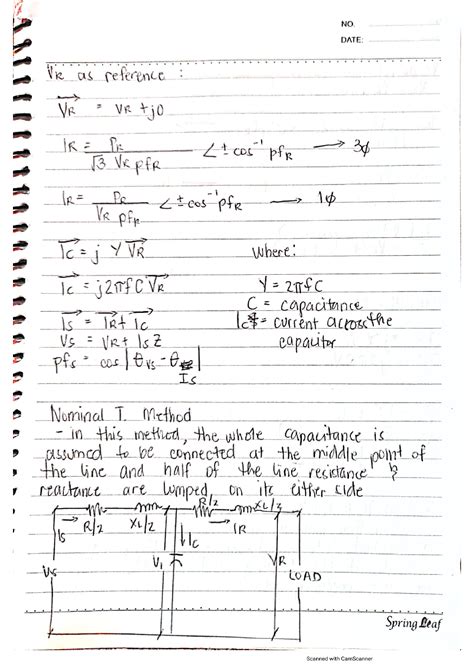 NO.
DATE:
VR as reference :
VR = VR + j0
IR = PR / √3 VR pfR ∠± cos⁻¹ pfR → 3ϕ
IR = PR / VR pfR ∠± cos⁻¹ pfR → 1ϕ
IC = j Y VR where:
IC = j2πfC VR Y = 2πfC
C = capacitance
IS = IR + IC IC = current across the
VS = VR + IS Z capacitor
pfs = cos | θVS - θIS |
Nominal T. Method
- in this method, the whole capacitance is
assumed to be connected at the middle point of
the line and half of the line resistance &
reactance are lumped on its either side
R/2 XL/2 R/2 XL/2
IS IC IR
VS V1 VR LOAD
Spring Leaf
Scanned with CamScanner